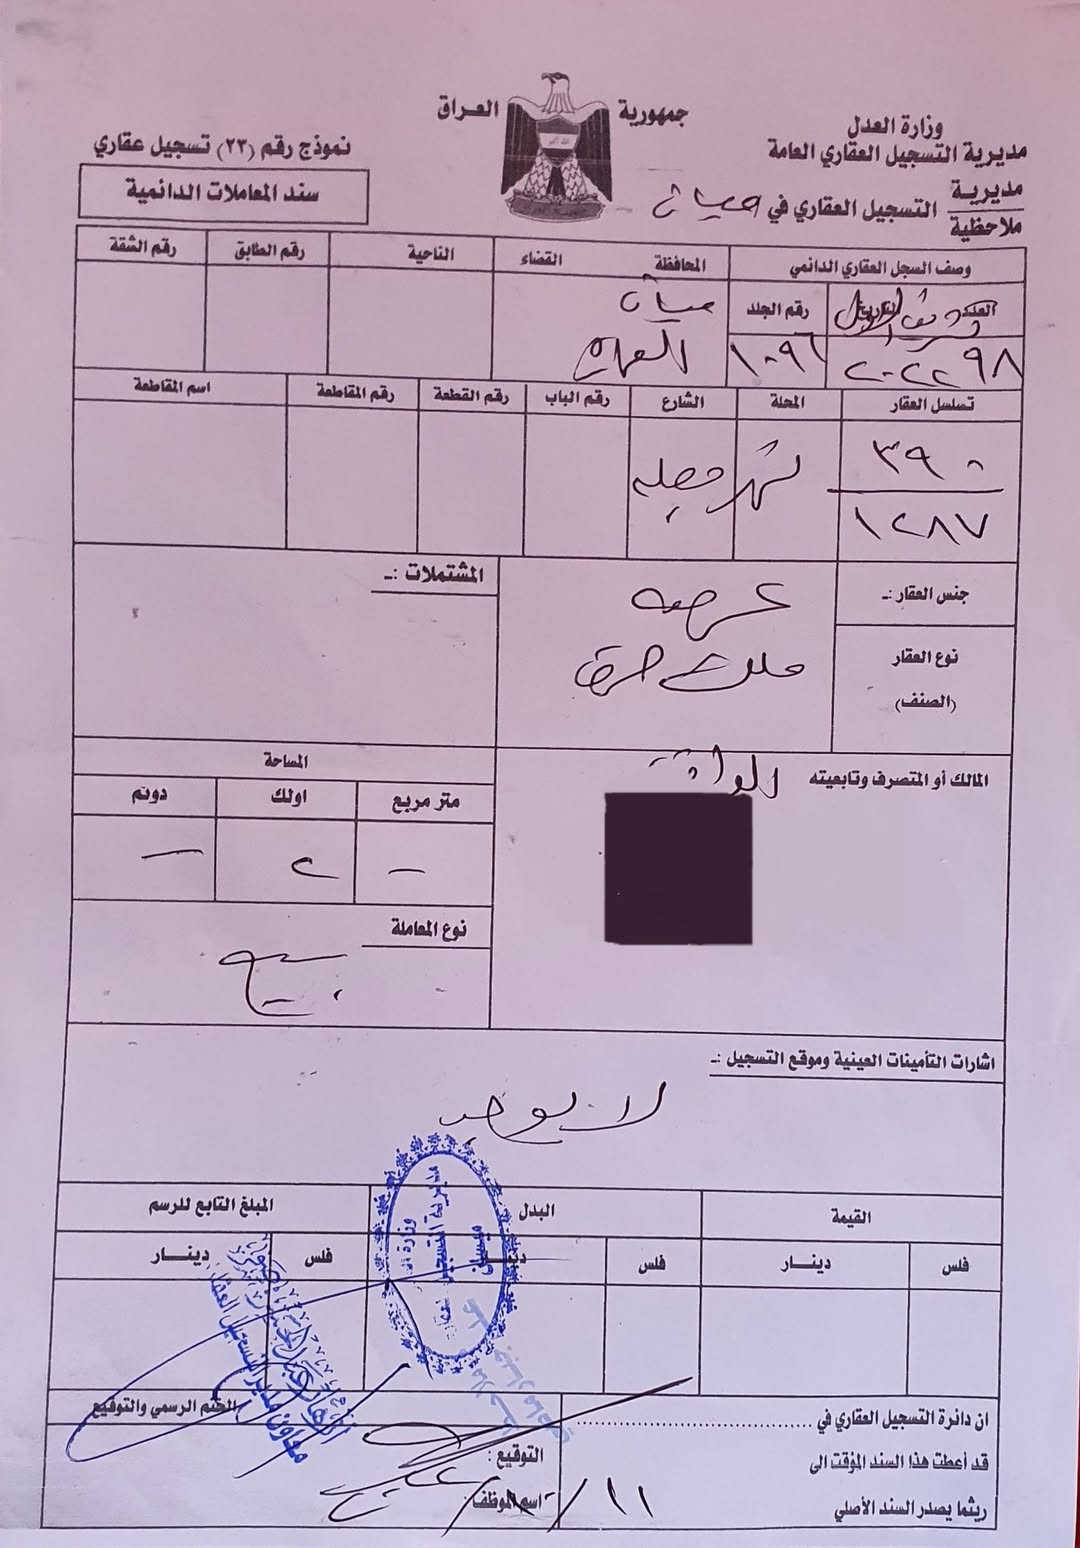 جمهورية العراق
وزارة العدل
مديرية التسجيل العقاري العامة
مديرية
ملاحظية
التسجيل العقاري في ميسان
نموذج رقم (٢٣) تسجيل عقاري
سند المعاملات الدائمية
وصف السجل العقاري الدائمي
المحافظة
القضاء
الناحية
رقم الطابق
رقم الشقة
العدد
التاريخ
رقم الجلد
تشرين الاول
٩٨
٢٠٢٢
١٠٩٦
ميسان
العمارة
تسلسل العقار
المحلة
الشارع
رقم الباب
رقم القطعة
رقم المقاطعة
اسم المقاطعة
٣٩٠
١٢٨٧
جنس العقار :ـ
عرصه
نوع العقار
(الصنف)
ملك صرف
المشتملات :ـ
المالك أو المتصرف وتابعيته
المساحة
متر مربع
اولك
دونم
–
٢
–
نوع المعاملة
بيع
اشارات التأمينات العينية وموقع التسجيل :ـ
لا يوجد
القيمة
البدل
المبلغ التابع للرسم
فلس
دينـار
فلس
فلس
دينـار
ان دائرة التسجيل العقاري في
قد أعطت هذا السند المؤقت الى
ريثما يصدر السند الأصلي
الختم الرسمي والتوقيع
التوقيع :
اسم الموظف :